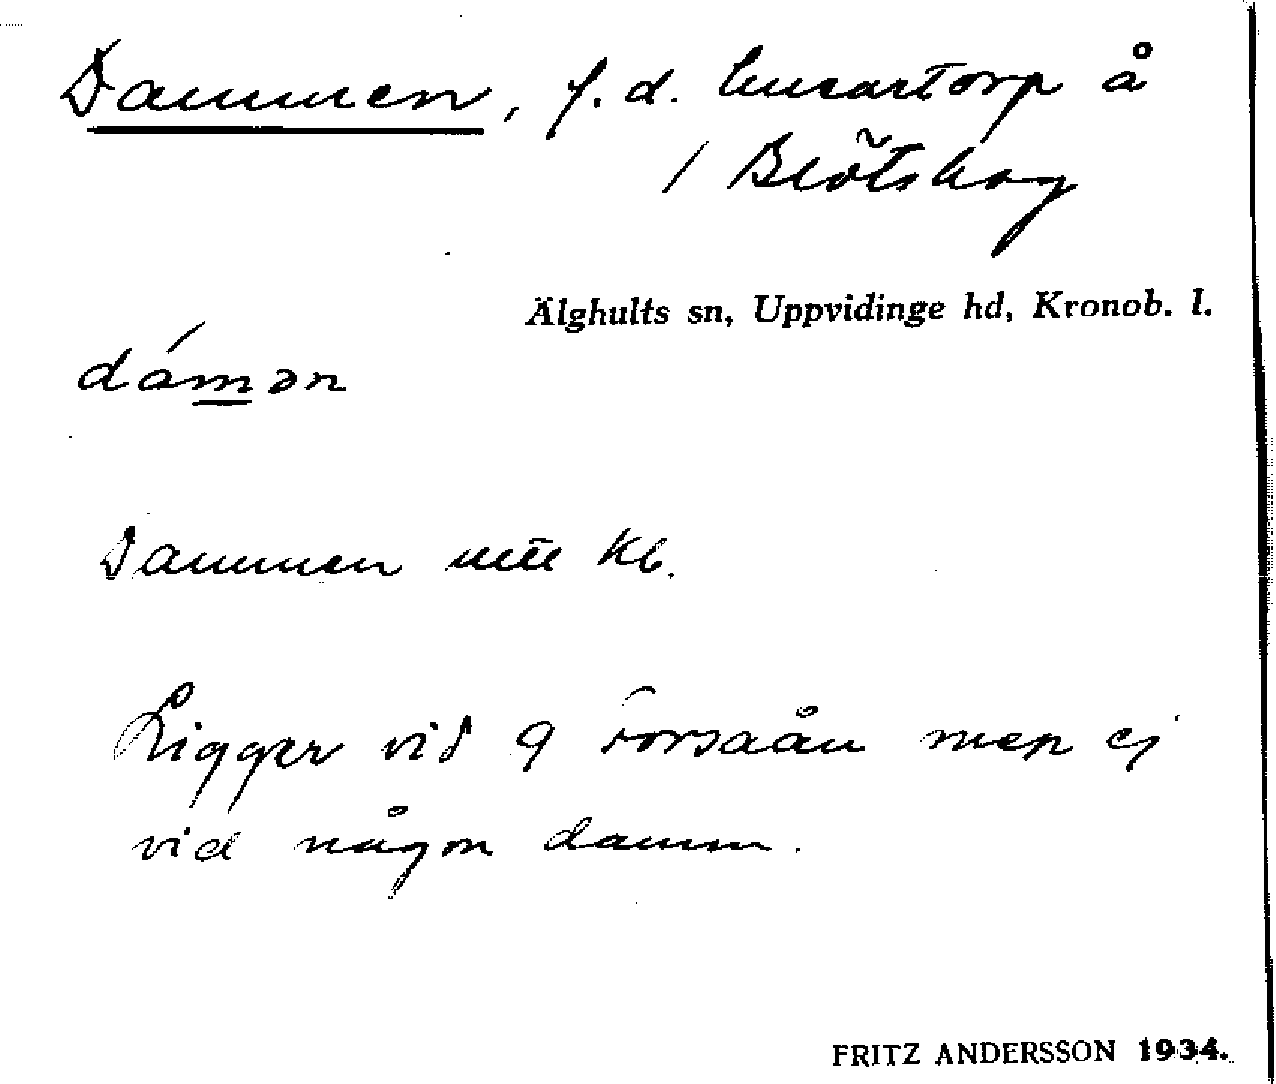 Dammen, f.d. husartorp å
/ Blötskog
Älghults sn, Uppvidinge hd, Kronob. l.
dámən
Dammen utt Kb.
Ligger vid Forsaån men ej
vid någon damm.
FRITZ ANDERSSON 1934.